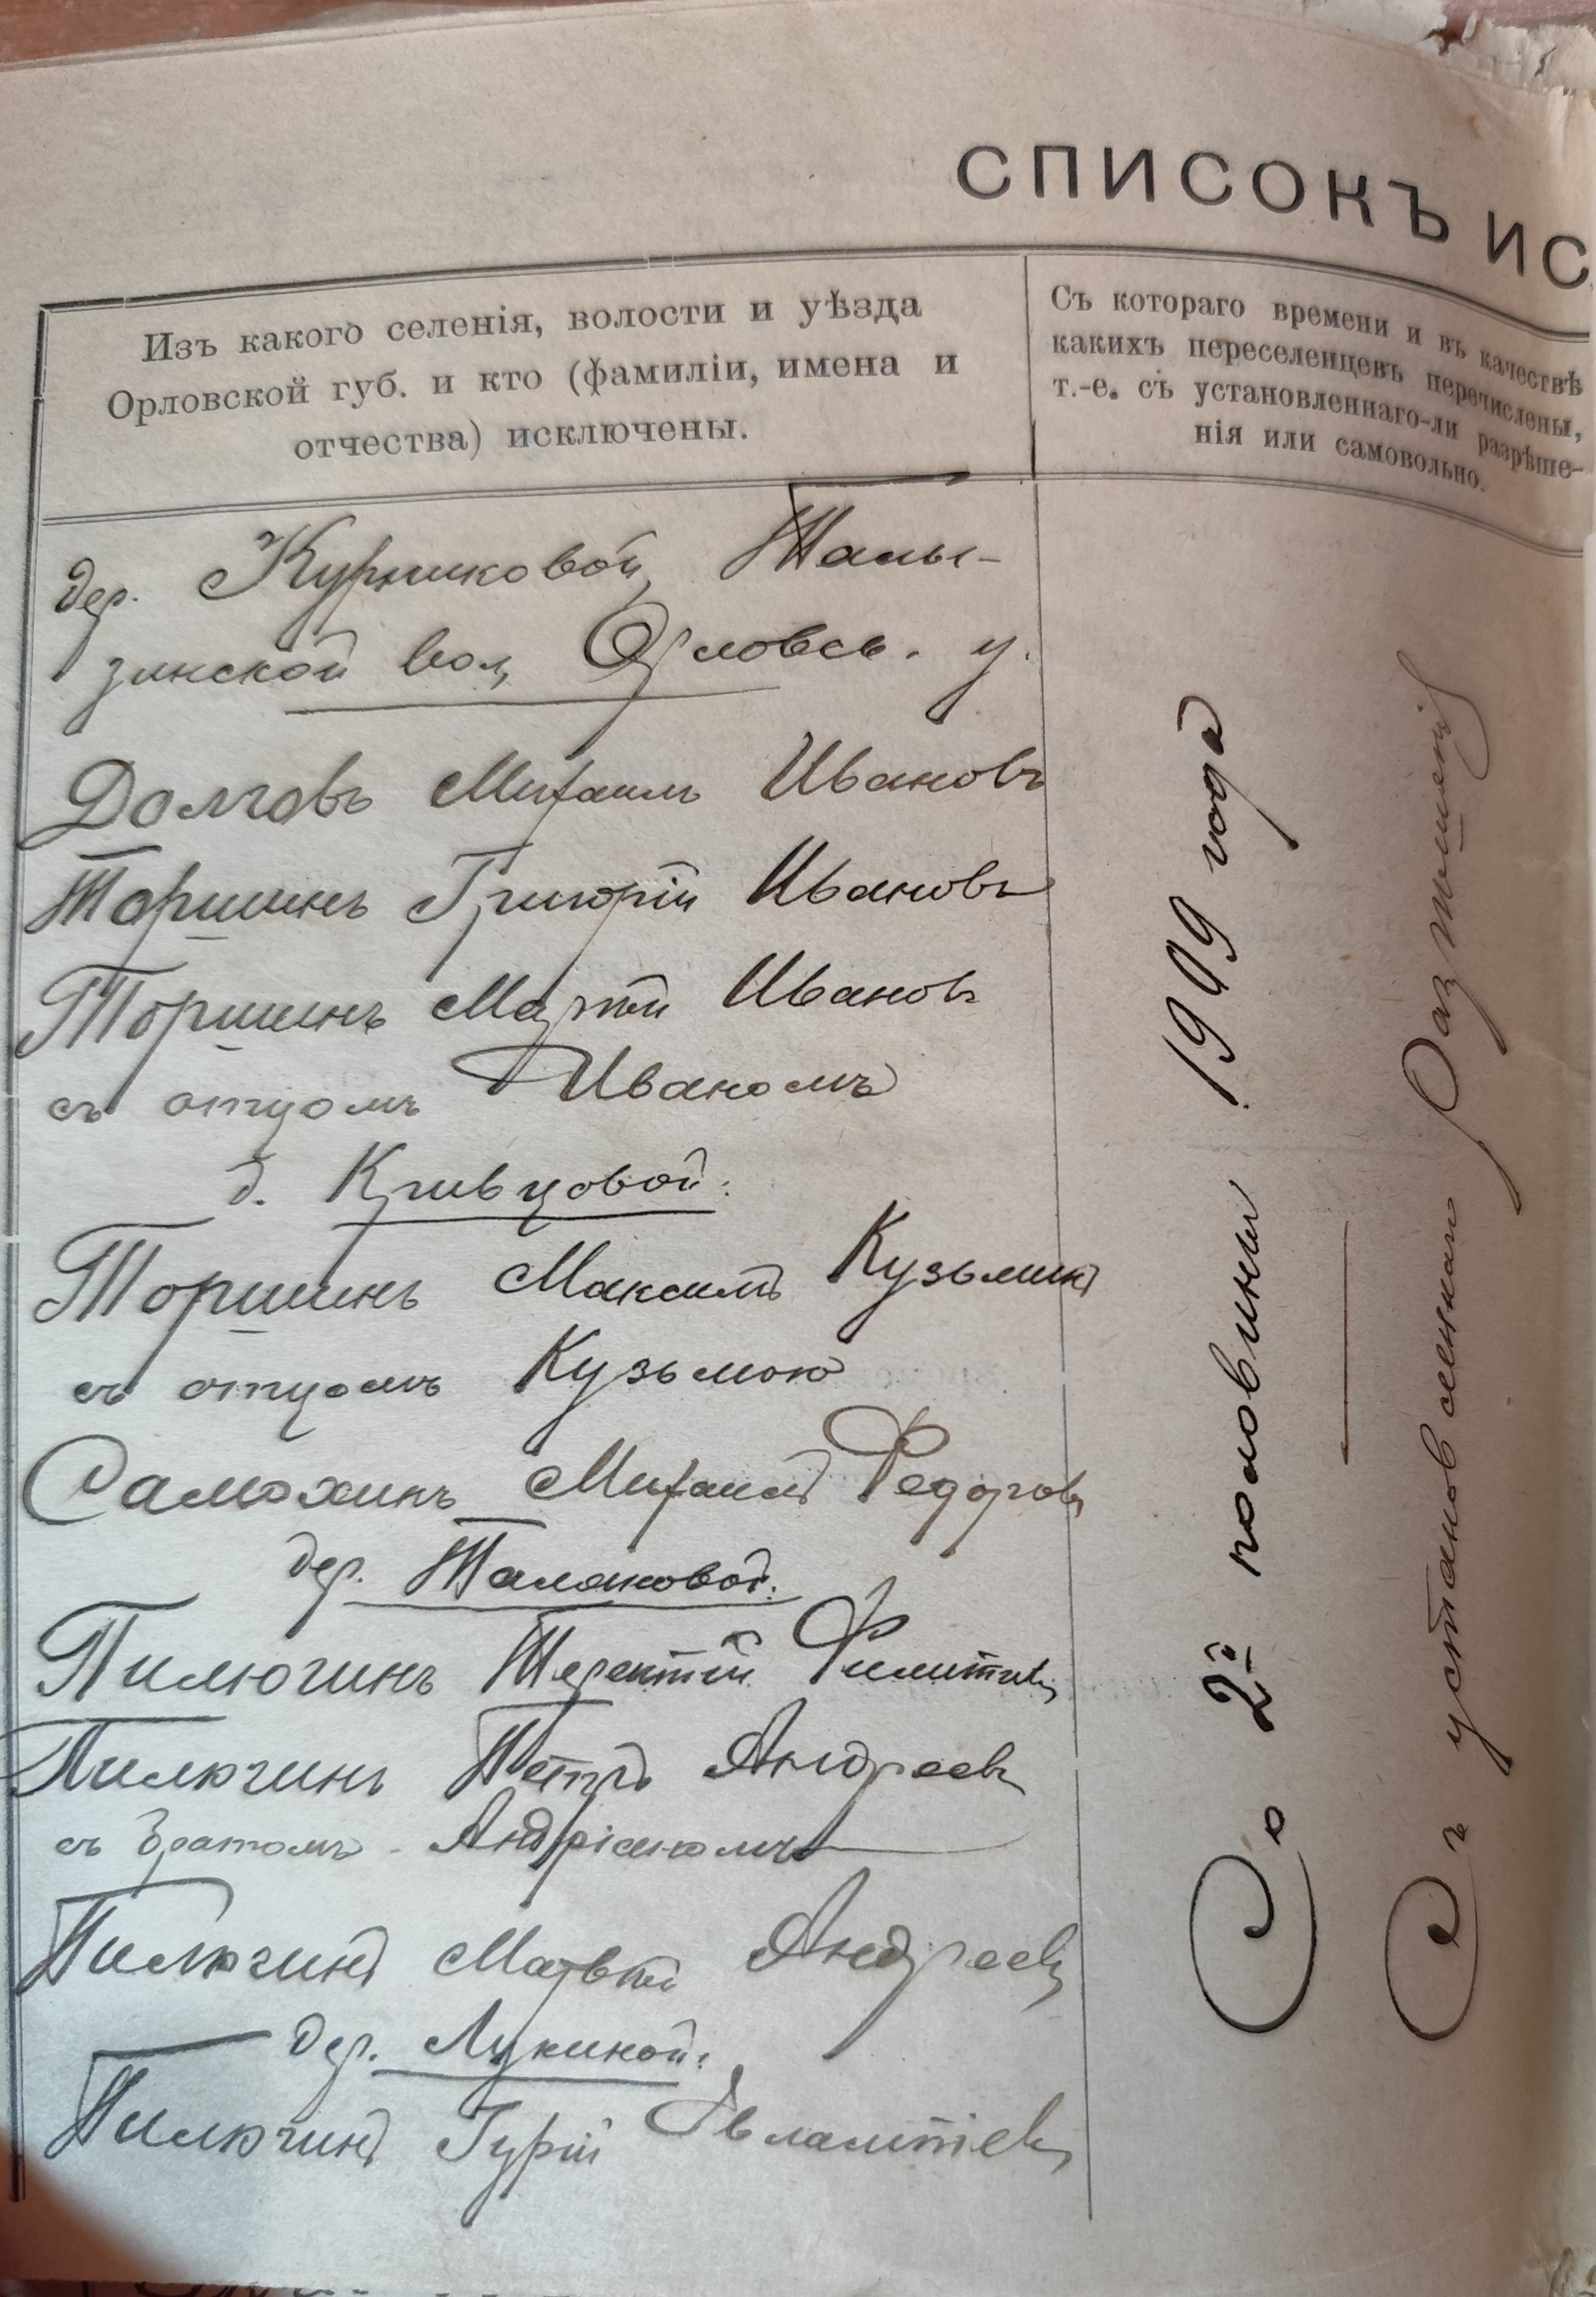 СПИСОКЪ ИС
Изъ какого селенія, волости и уѣзда
Орловской губ. и кто (фамиліи, имена и
отчества) исключены.
Съ котораго времени и въ качествѣ
какихъ переселенцевъ перечислены,
т.-е. съ установленнаго-ли разрѣше-
нія или самовольно.
дер. Курниковой, Талы-
зинской вол, Орловск. у.
Долговъ Михаилъ Ивановъ
Торшинъ Григорій Ивановъ
Торшинъ Сергѣй Ивановъ
съ отцомъ Иваномъ
д. Кривцовой.
Торшинъ Максимъ Кузьминъ
съ отцомъ Кузьмою
Самохинъ Михаилъ Федоровъ
дер. Талановой.
Пилюгинъ Терентій Филиповъ
Пилюгинъ Петръ Андреевъ
съ братомъ Андріаномъ
Пилюгинъ Матвѣй Андреевъ
дер. Лукиной.
Пилюгинъ Гурій Евлампіевъ
Со 2й половины 1909 года
Съ установленнаго Разрѣшенія